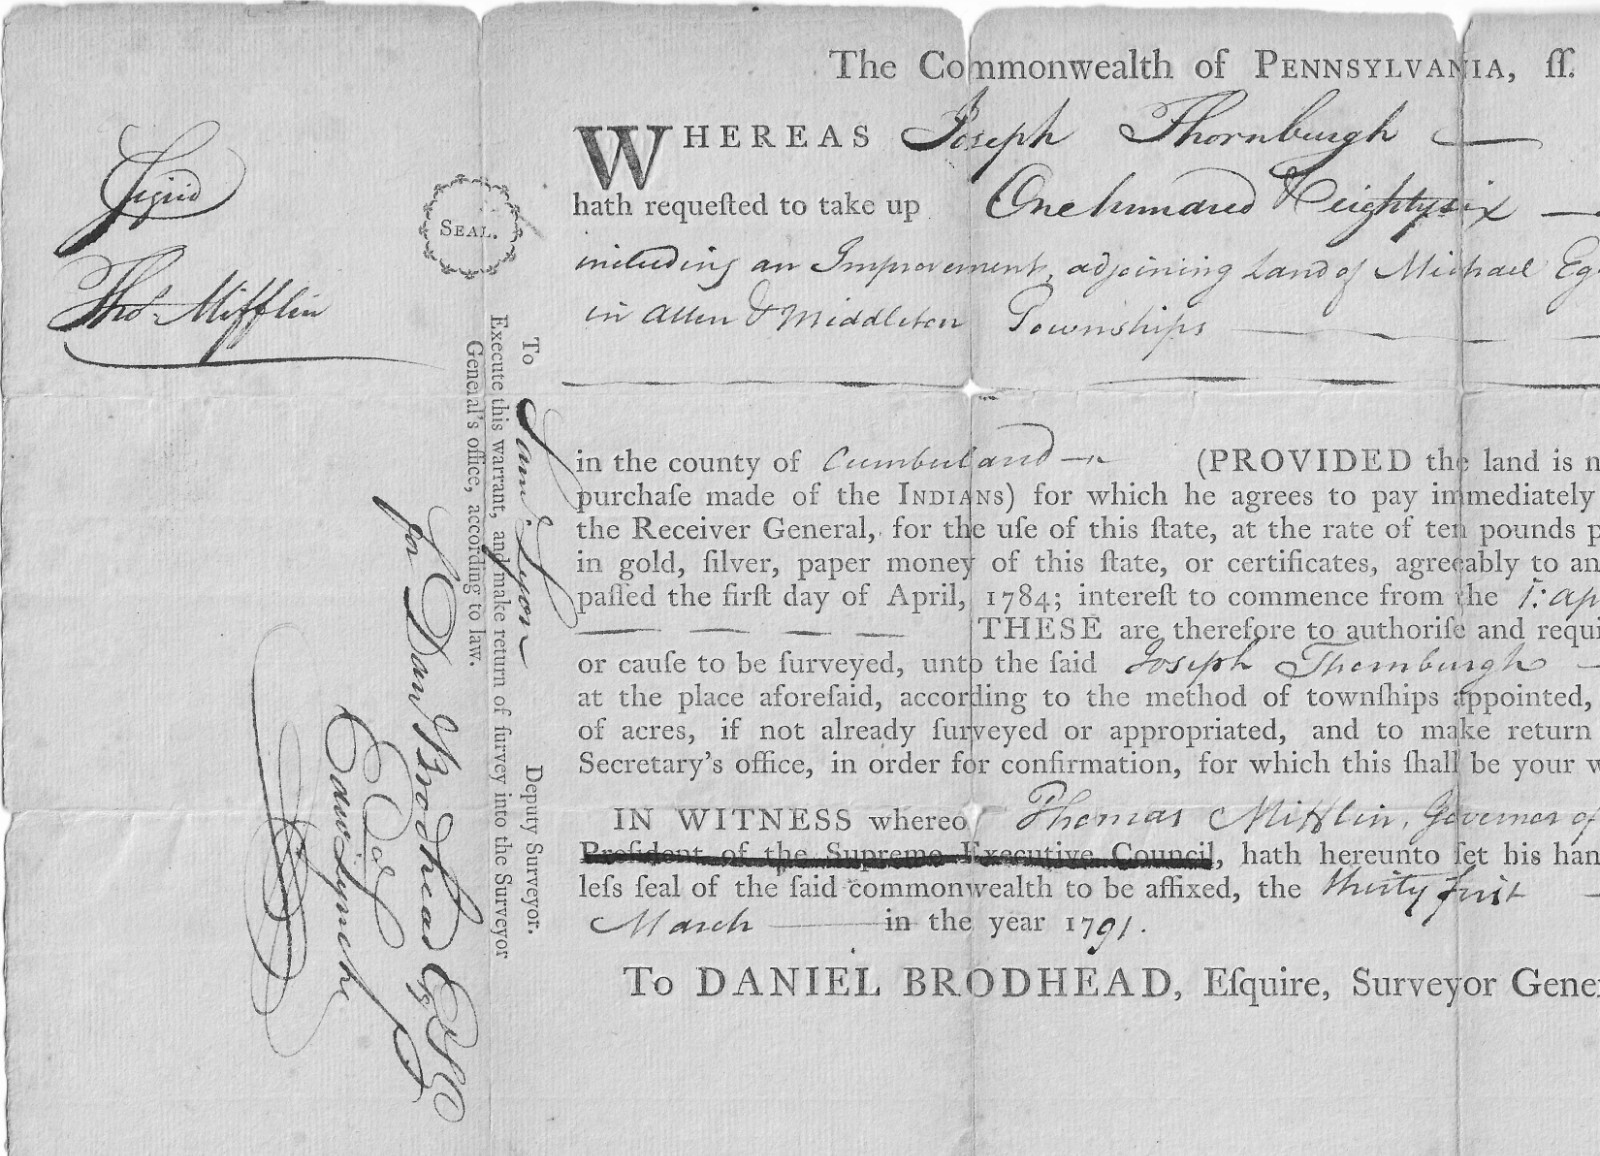 The Commonwealth of PENNSYLVANIA, ſſ.
WHEREAS Joseph Thornburgh
hath requeſted to take up One hundred & eighty six
including an Improvement, adjoining Land of Michael Eg
in Allen & Middleton Townships
in the county of Cumberland (PROVIDED the land is n
purchaſe made of the INDIANS) for which he agrees to pay immediately
the Receiver General, for the uſe of this ſtate, at the rate of ten pounds p
in gold, ſilver, paper money of this ſtate, or certificates, agreeably to an
paſſed the firſt day of April, 1784; intereſt to commence from the 1: ap
THESE are therefore to authoriſe and requi
or cauſe to be ſurveyed, unto the ſaid Joseph Thornburgh
at the place aforeſaid, according to the method of townſhips appointed,
of acres, if not already ſurveyed or appropriated, and to make return
Secretary's office, in order for confirmation, for which this ſhall be your w
IN WITNESS whereof Thomas Mifflin, Governor of
Preſident of the Supreme Executive Council, hath hereunto ſet his han
leſs ſeal of the ſaid commonwealth to be affixed, the thirty first
March in the year 1791.
To DANIEL BRODHEAD, Eſquire, Surveyor Gene
Signed
Thos. Mifflin
SEAL.
To Saml. Lyon Deputy Surveyor.
Execute this warrant, and make return of ſurvey into the Surveyor
General's office, according to law.
for Danl Brodhead Esqr S G
Edwd Lynch